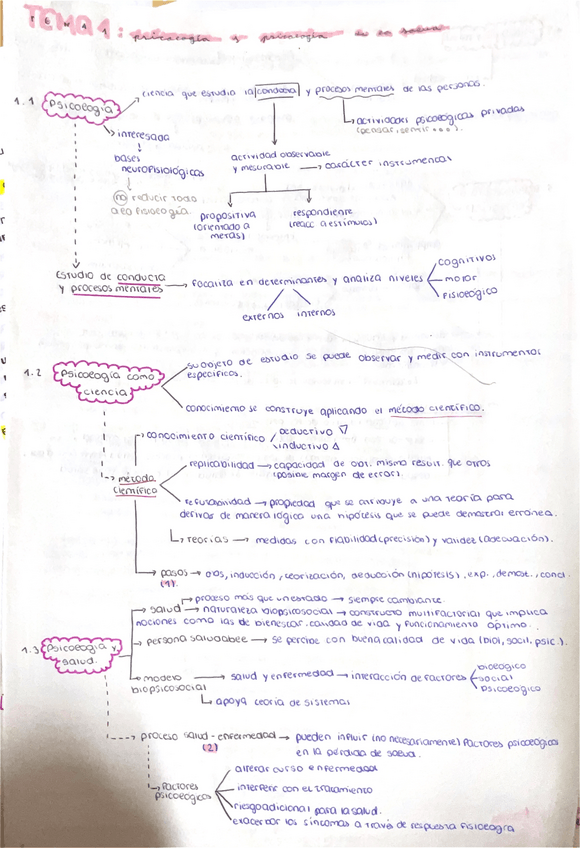 TEMA 1: psicología y psicología de la salud
1.1 Psicología
ciencia que estudia la conducta y procesos mentales de las personas.
actividades psicológicas privadas
(pensar, sentir...).
interesada
bases
neurofisiológicas
no reducir todo
a la fisiología.
actividad observable
y mesurable → carácter instrumental
propositiva
(orientado a
metas)
respondiente
(reacc a estímulos)
Estudio de conducta
y procesos mentales → focaliza en determinantes y analiza niveles
externos internos
cognitivos
motor
fisiológico
1.2 Psicología como
ciencia
su objeto de estudio se puede observar y medir con instrumentos
específicos.
conocimiento se construye aplicando el método científico.
método
científico
conocimiento científico
deductivo ▽
inductivo △
replicabilidad → capacidad de obt. mismo result. que otros
(posible margen de error).
refutabilidad → propiedad que se atribuye a una teoría para
derivar de manera lógica una hipótesis que se puede demostrar errónea.
teorías → medidas con fiabilidad (precisión) y validez (adecuación).
pasos → obs, inducción, teorización, deducción (hipótesis), exp., demost., concl.
(1).
1.3 Psicología y
salud.
proceso más que un estado → siempre cambiante.
salud → naturaleza biopsicosocial → constructo multifactorial que implica
nociones como las de bienestar, calidad de vida y funcionamiento óptimo.
persona saludable → se percibe con buena calidad de vida (biol, social, psic.).
modelo
biopsicosocial
salud y enfermedad → interacción de factores
biológico
social
psicológico
apoya teoría de sistemas
proceso salud-enfermedad → pueden influir (no necesariamente) factores psicológicos
en la pérdida de salud.
(2)
factores
psicológicos
alterar curso enfermedad
interferir con el tratamiento
riesgo adicional para la salud.
exacerbar los síntomas a través de respuesta fisiológica